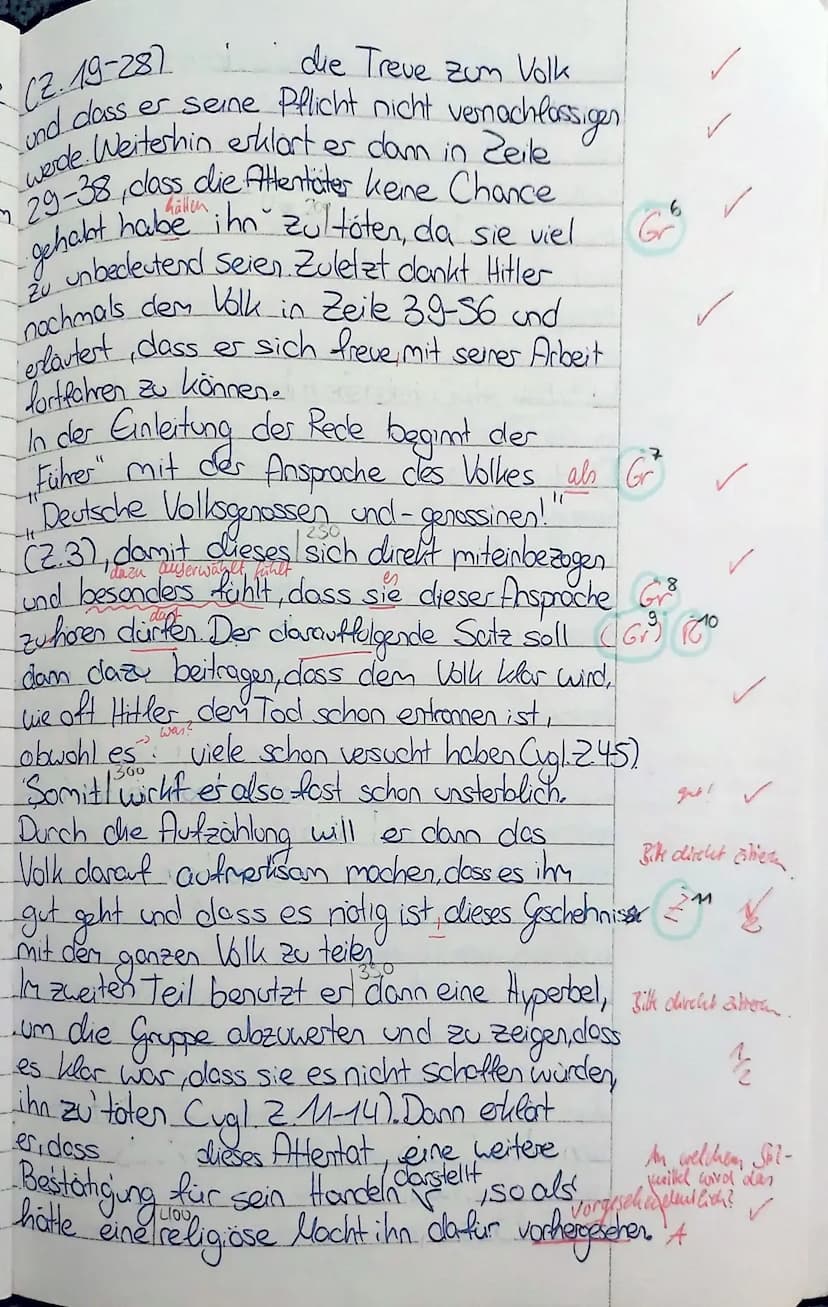 (Z. 19-28) die Treue zum Volk ✓
und dass er seine Pflicht nicht vernachlässigen ✓
werde. Weiterhin erklärt er dann in Zeile
29-38, dass die Attentäter keine Chance ✓
hätten
gehabt habe ihn zu töten, da sie viel Gr 6
zu unbedeutend seien. Zuletzt dankt Hitler
nochmals dem Volk in Zeile 39-56 und ✓
erläutert, dass er sich freue, mit seiner Arbeit
fortfahren zu können.
In der Einleitung der Rede beginnt der
"Führer" mit der Ansprache des Volkes als Gr 7 ✓
"Deutsche Volksgenossen und -genossinen!"
250
(Z.3), damit dieses sich direkt miteinbezogen ✓
dazu auserwählt fühlt es
und besonders fühlt, dass sie dieser Ansprache Gr 8
darf
zuhören dürfen. Der darauffolgende Satz soll (Gr) 9 R 10
dann dazu beitragen, dass dem Volk klar wird, ✓
wie oft Hitler dem Tod schon entronnen ist,
→ was?
obwohl es viele schon versucht haben (vgl. Z 45).
300
Somit wirkt er also fast schon unsterblich. gut! ✓
Durch die Aufzählung will er dann das Bitte direkt zitieren.
Volk darauf aufmerksam machen, dass es ihm
gut geht und dass es nötig ist, dieses Geschehnis Z 11
mit dem ganzen Volk zu teilen
350
Im zweiten Teil benutzt er dann eine Hyperbel, Bitte direkt zitieren.
um die Gruppe abzuwerten und zu zeigen, dass
es klar war, dass sie es nicht schaffen würden, 1/2
ihn zu töten (vgl. Z. 11-14). Dann erklärt
er, dass dieses Attentat, eine weitere An welchem Stil-
Bestätigung für sein Handeln darstellt, so als mittel wird das
vorgesehen deutlich? ✓
400
hätte eine religiöse Macht ihn dafür vorhergesehen. A